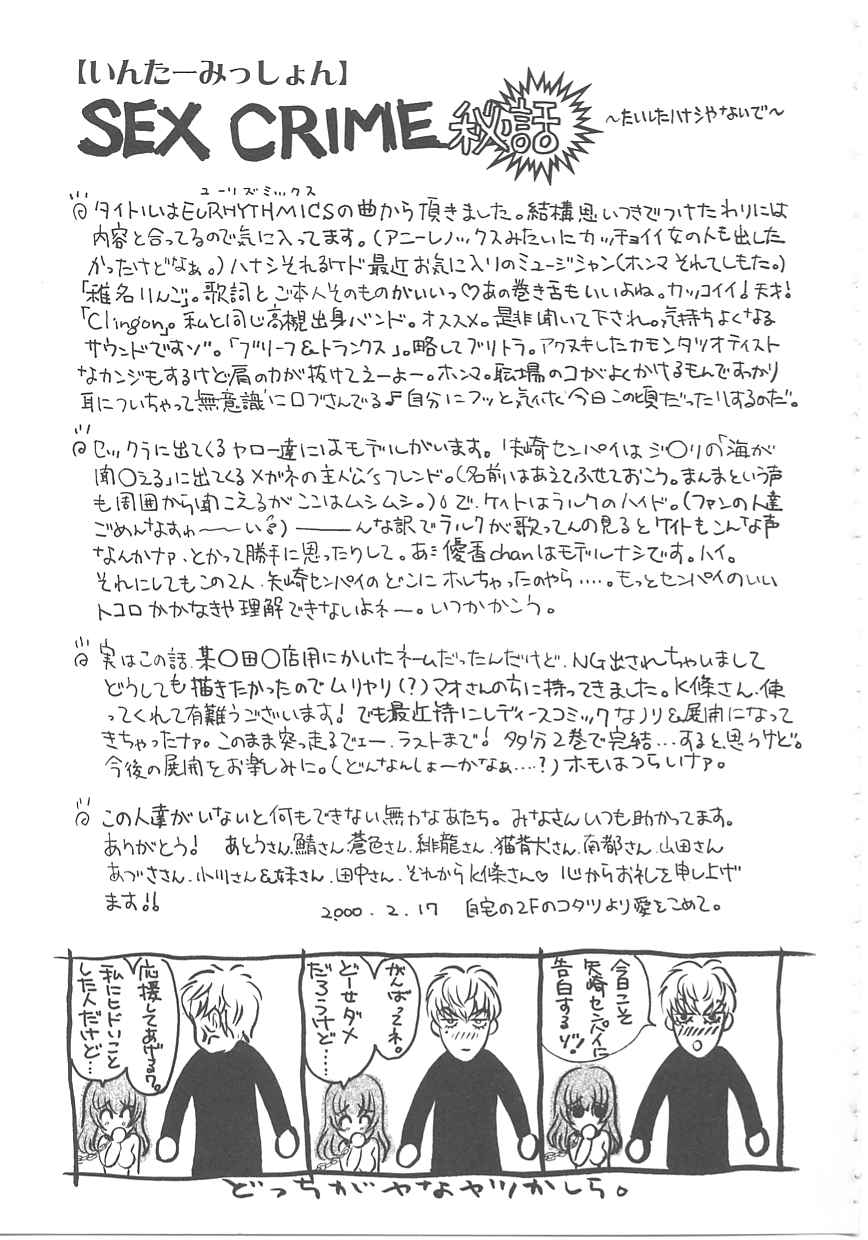 【いんたーみっしょん】
SEX CRIME 秘話 〜たいしたハナシやないで〜
ユーリズミックス
タイトルはEURHYTHMICSの曲から頂きました。結構思いつきでつけたわりには
内容と合ってるので気に入ってます。(アニーレノックスみたいにカッチョイイ女の人も出した
かったけどなぁ。)ハナシそれるケド最近お気に入りのミュージシャン(ホンマそれてしもた。)
「椎名りんご」。歌詞とご本人そのものがいいっ♡あの巻き舌もいいよね。カッコイイ!天才!
「Clingon」。私と同じ高槻出身バンド。オススメ。是非聞いて下され。気持ちよくなる
サウンドですゾ。「ブリーフ&トランクス」。略してブリトラ。アクヌキしたカモンタツオテイスト
なカンジもするけど肩の力が抜けてえーよー。ホンマ。職場のコがよくかけるもんですっかり
耳についちゃって無意識に口ずさんでる♪自分にフッと気付く今日この頃だったりするのだ。
セックラに出てくるヤロー達にはモデルがいます。矢崎センパイはジ〇リの「海が
聞〇える」に出てくるメガネの主人公'sフレンド。(名前はあえてふせておこう。まんまという声
も周囲から聞こえるがここはムシムシ。)で、ケイトはラルクのハイド。(ファンの人達
ごめんなさぁ〜〜い)――んな訳でラルクが歌ってんの見るとケイトもこんな声
なんかナァ、とかって勝手に思ったりして。あ、優香chanはモデルナシです。ハイ。
それにしてもこの2人、矢崎センパイのどこにホレちゃったのやら……。もっとセンパイのいい
トコロかかなきゃ理解できないよネー。いつかかこう。
実はこの話、某〇田〇店用にかいたネームだったんだけど、NG出されちゃいまして
どうしても描きたかったのでムリヤリ(?)マオさんのちに持ってきました。K條さん、使
ってくれて有難うございます!でも最近特にレディースコミックなノリ&展開になって
きちゃったナァ。このまま突っ走るでェー、ラストまで!多分2巻で完結…すると思うけど。
今後の展開をお楽しみに。(どんなんしょーかなぁ…?)ホモはつらいナァ。
この人達がいないと何もできない無力なあたち。みなさんいつも助かってます。
ありがとう! あとうさん、鯖さん、蒼色さん、緋龍さん、猫背犬さん、南都さん、山田さん
あづささん、小川さん&妹さん、田中さん、それからK條さん♡ 心からお礼を申し上げ
ます!!
2000.2.17 自宅の2Fのコタツより愛をこめて。
今日こそ
矢崎センパイに
告白するゾ!
がんばってネ。
どーせダメ
だろうけど…
応援してあげるワ。
私にヒドいこと
した人だけど…
どっちがヤなヤツかしら。